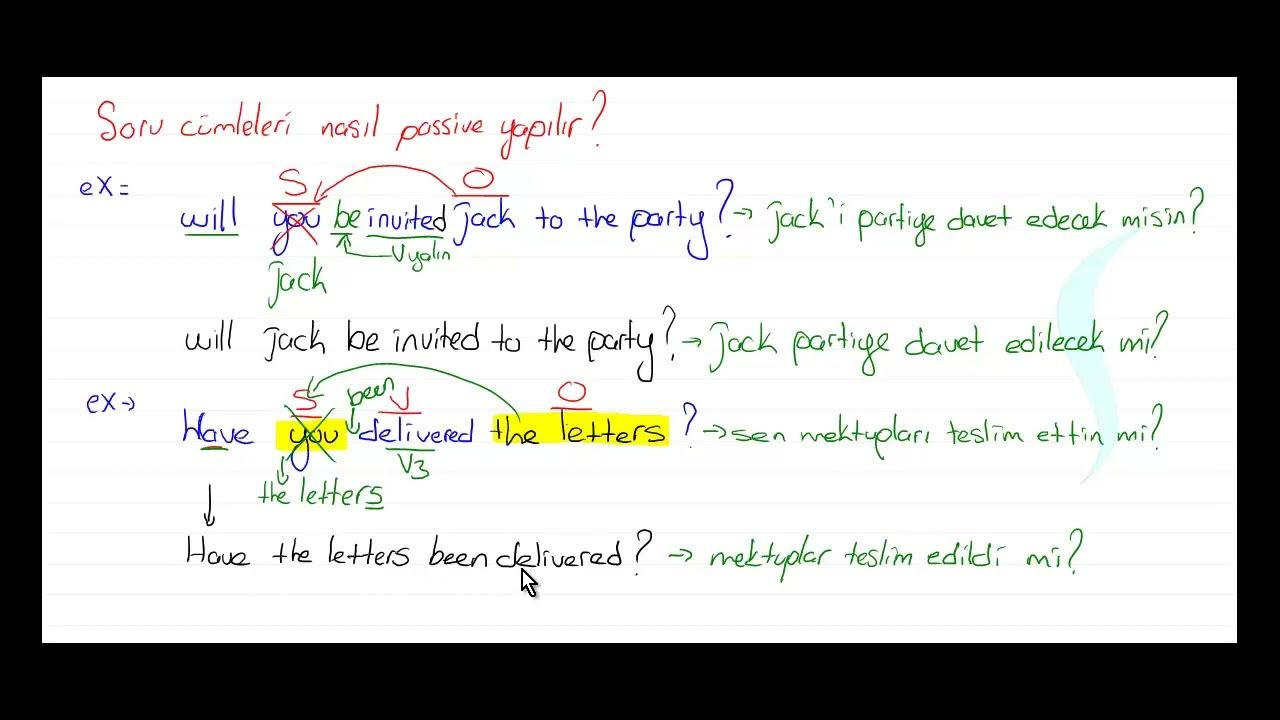 Soru cümleleri nasıl passive yapılır?
S O
ex= will you be invited jack to the party? → jack'i partiye davet edecek misin?
Vyalın
jack
will jack be invited to the party? → jack partiye davet edilecek mi?
S been V O
ex→ Have you delivered the letters? → sen mektupları teslim ettin mi?
V3
the letters
Have the letters been delivered? → mektuplar teslim edildi mi?